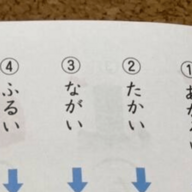 ①あ
②たかい
③ながい
④ふるい